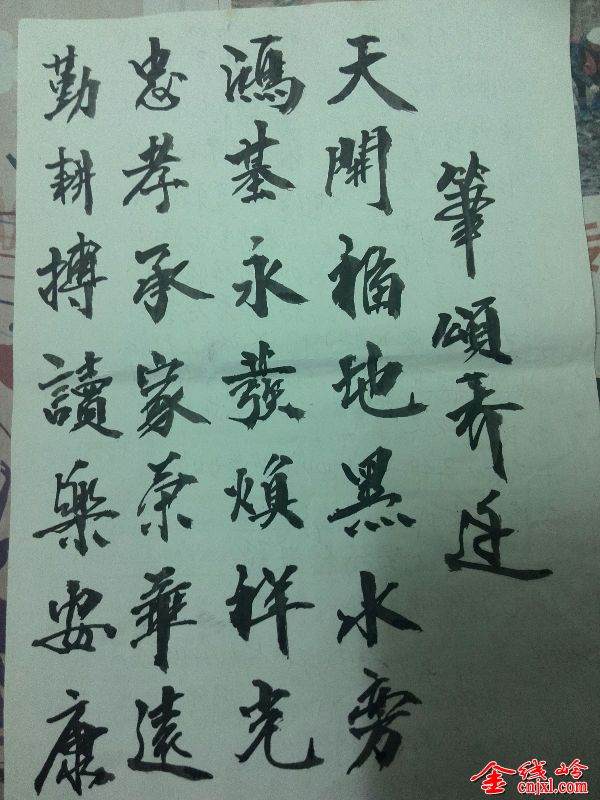 筆頌乔迁
天開福地黑水旁
鴻基永發焕祥光
忠孝承家荣華遠
勤耕搏讀樂安康
金线岭
cnjxl.com